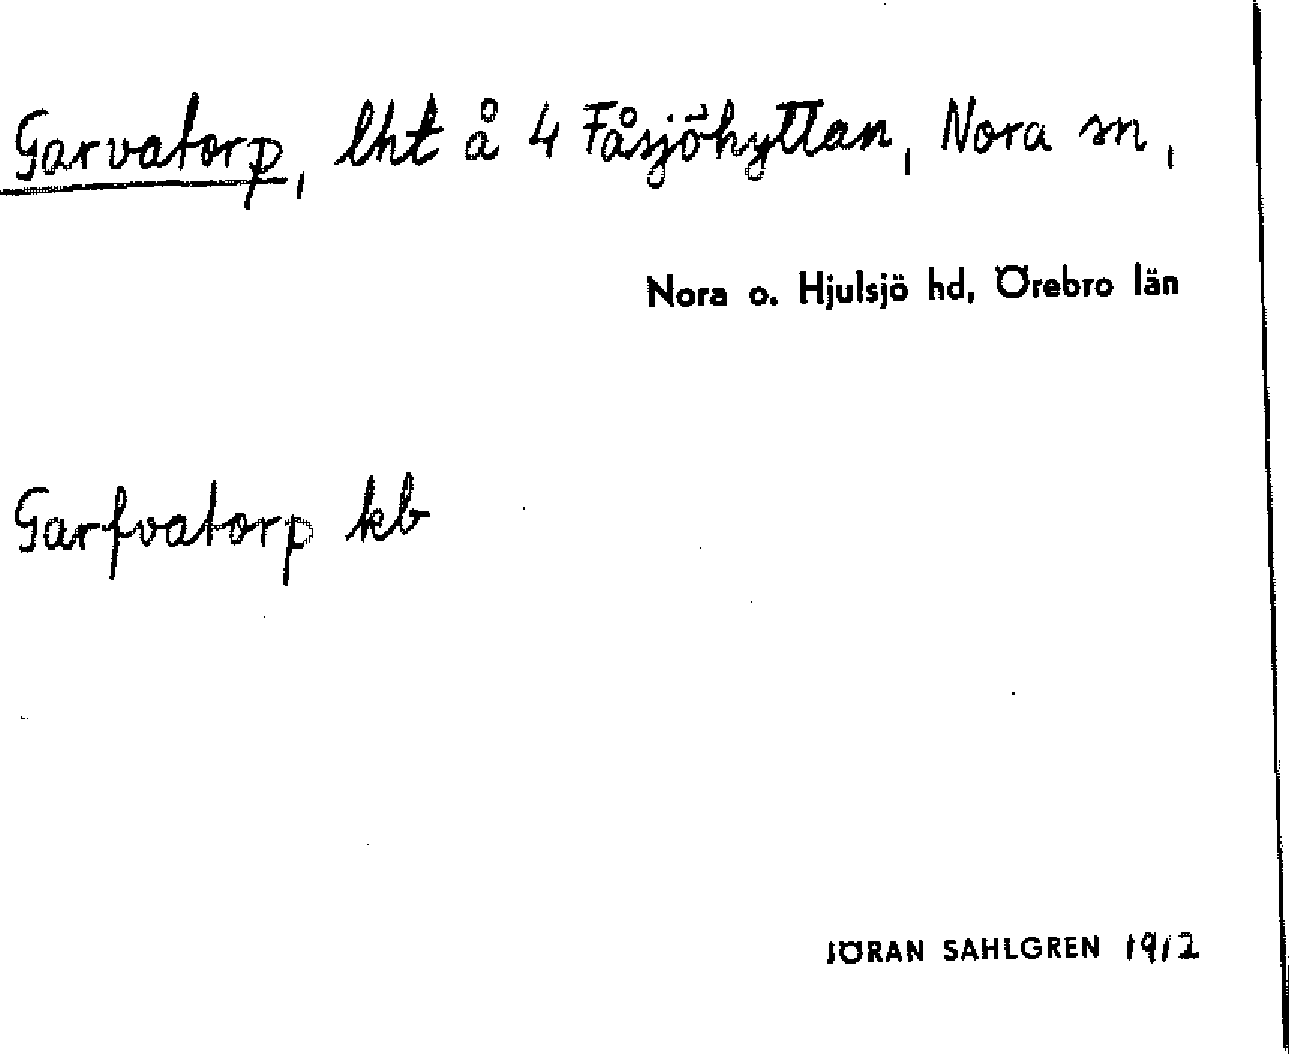 Garvatorp, lht å 4 Fåsjöhyttan, Nora sn,
Nora o. Hjulsjö hd, Örebro län
Garfvatorp kb
JÖRAN SAHLGREN 1912